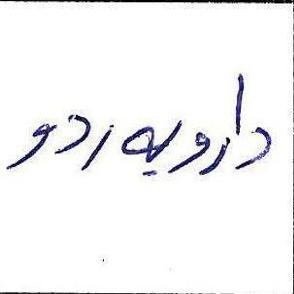 دارویه اردو